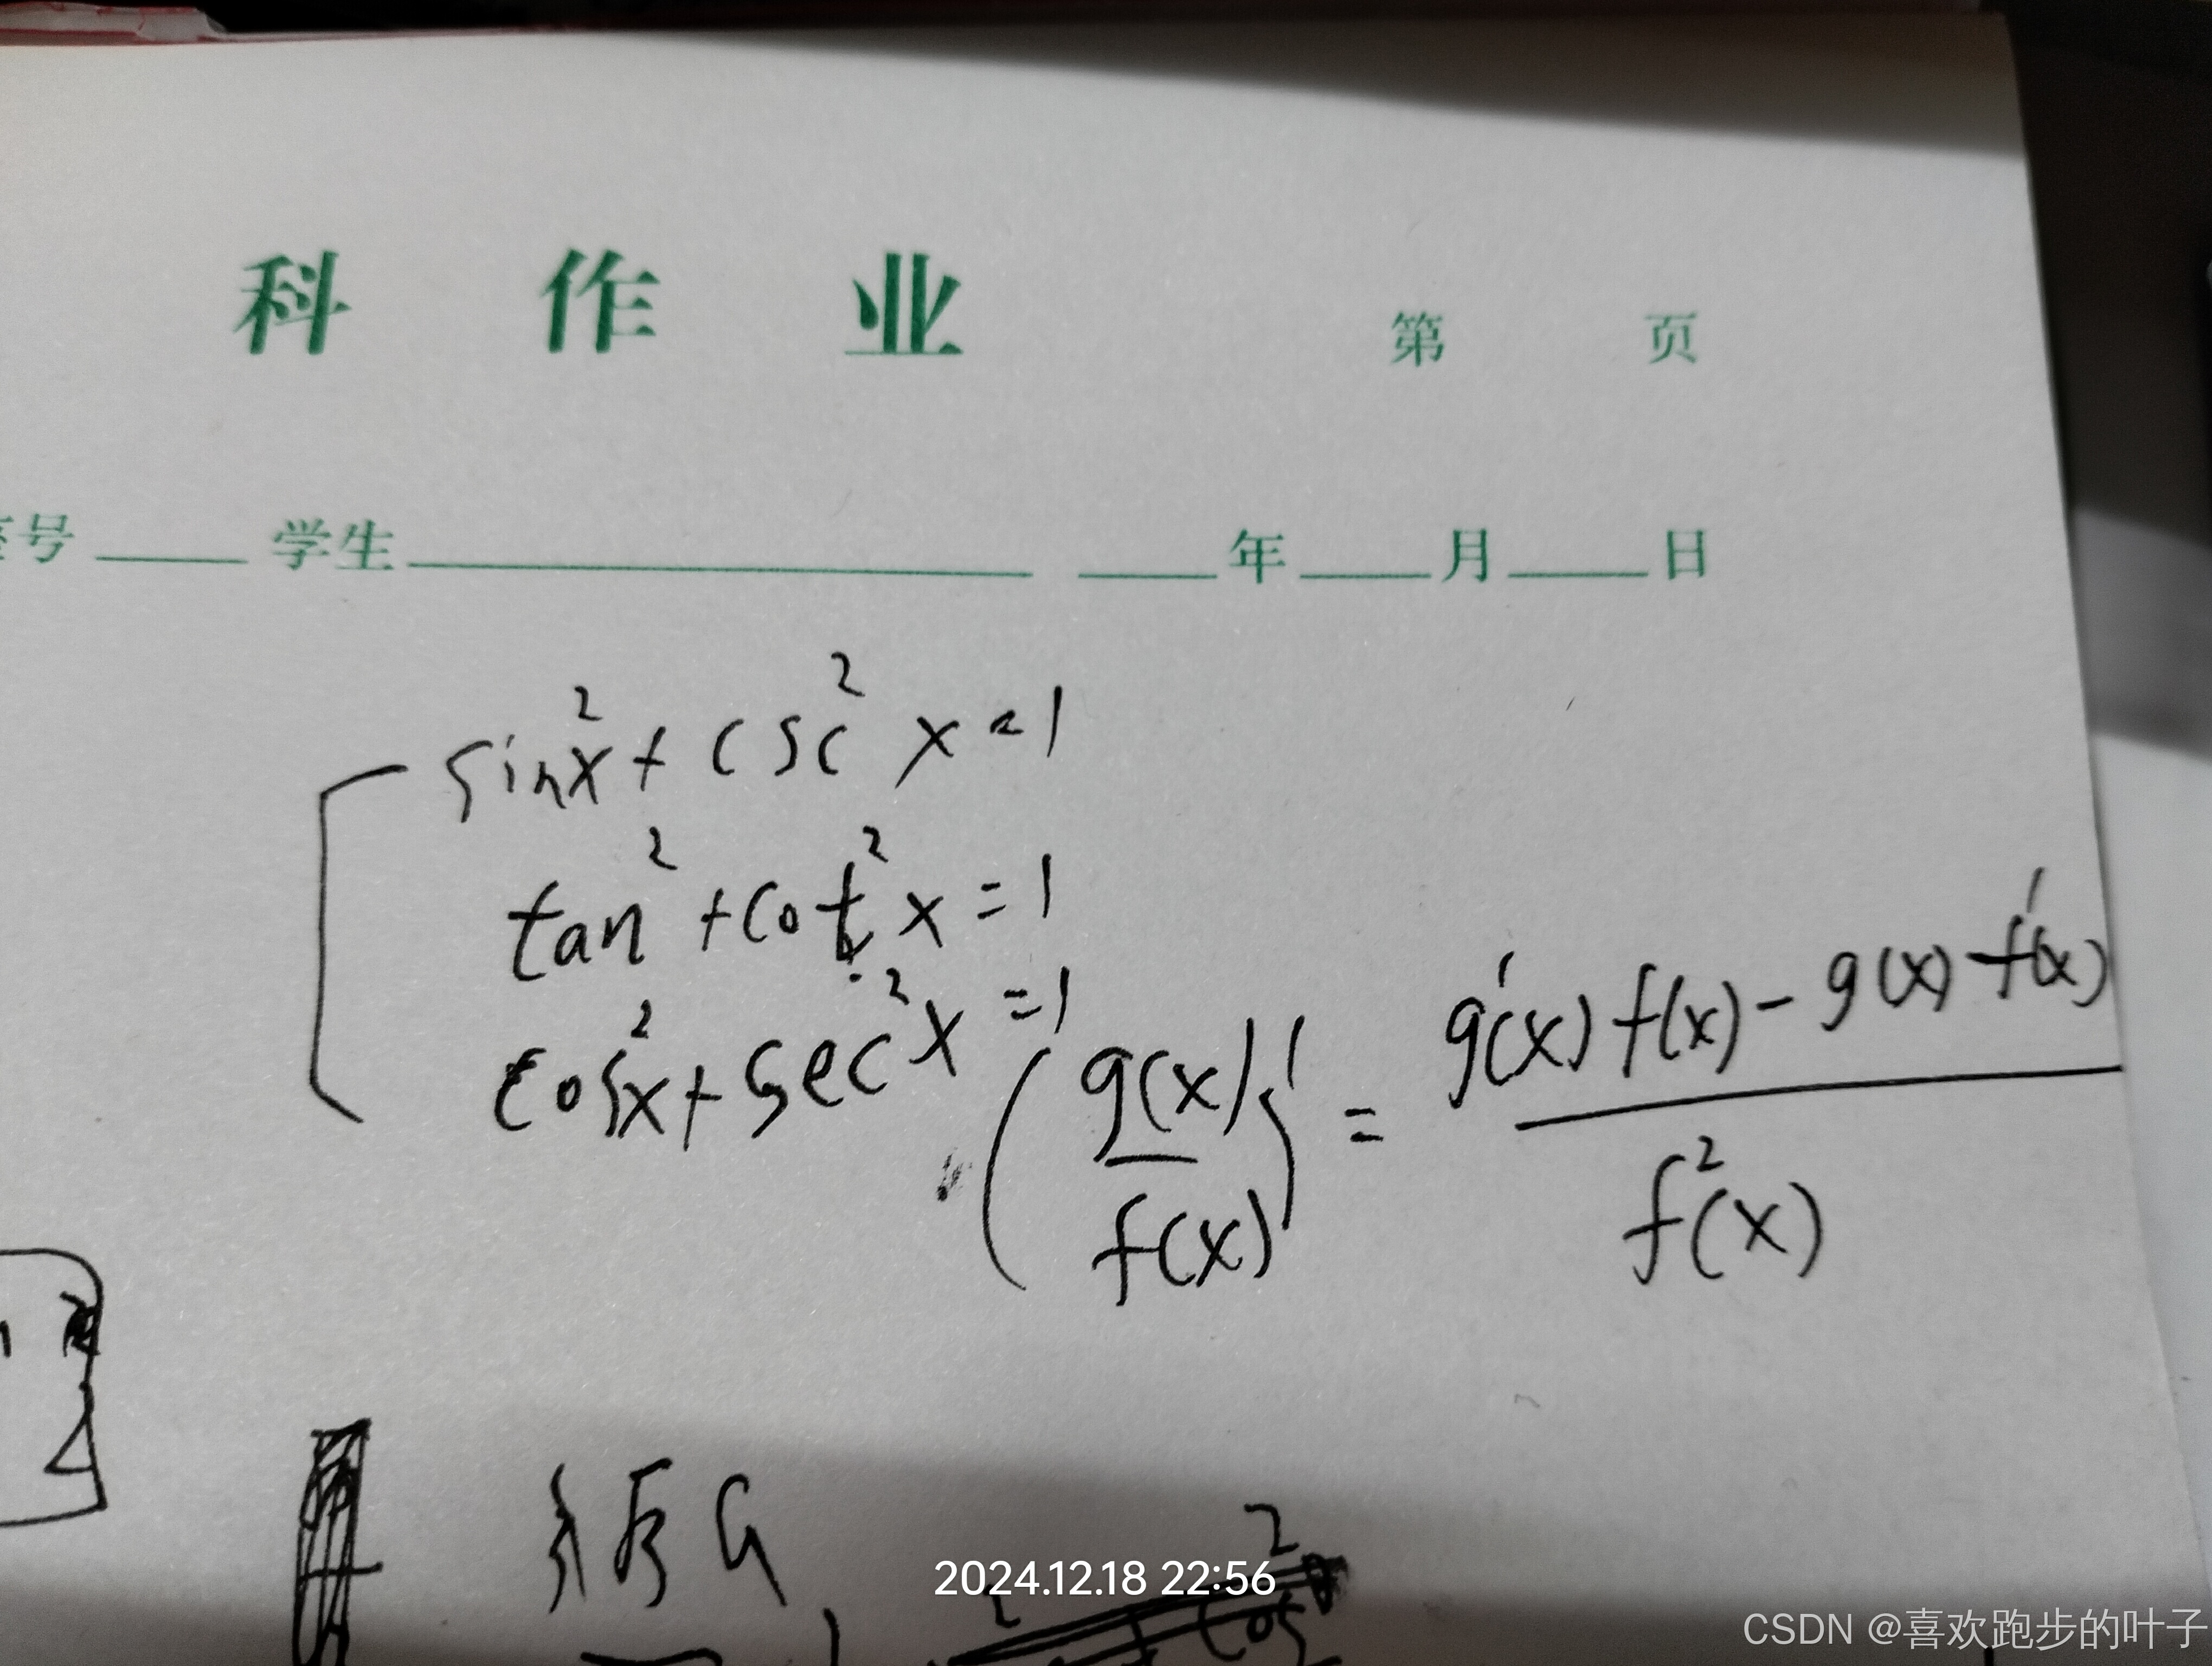 科 作 业 第 页
号 学生 年 月 日
sin²x + csc²x = 1
tan² + cot²x = 1
cos²x + sec²x = 1
(g(x)/f(x))' = (g'(x) f(x) - g(x) - f'(x))/f²(x)
2
2024.12.18 22:56
cos
CSDN @喜欢跑步的叶子